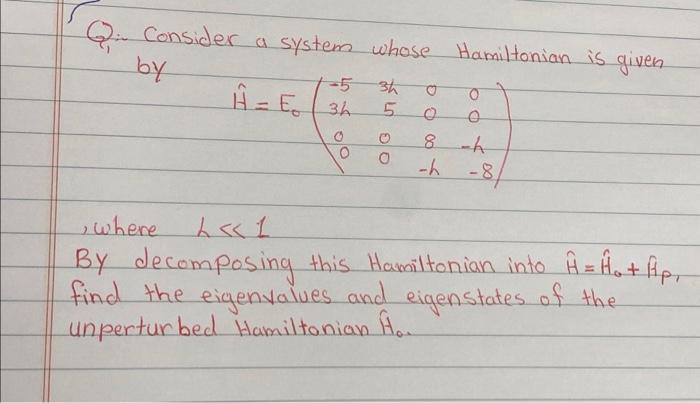 Q:- Consider a system whose Hamiltonian is given
by
Ĥ = E₀ ( -5 3h 0 0
3h 5 0 0
0 0 8 -h
0 0 -h -8 )
, where h << 1
By decomposing this Hamiltonian into Ĥ = Ĥ₀ + Ĥp,
find the eigenvalues and eigenstates of the
unperturbed Hamiltonian Ĥ₀.